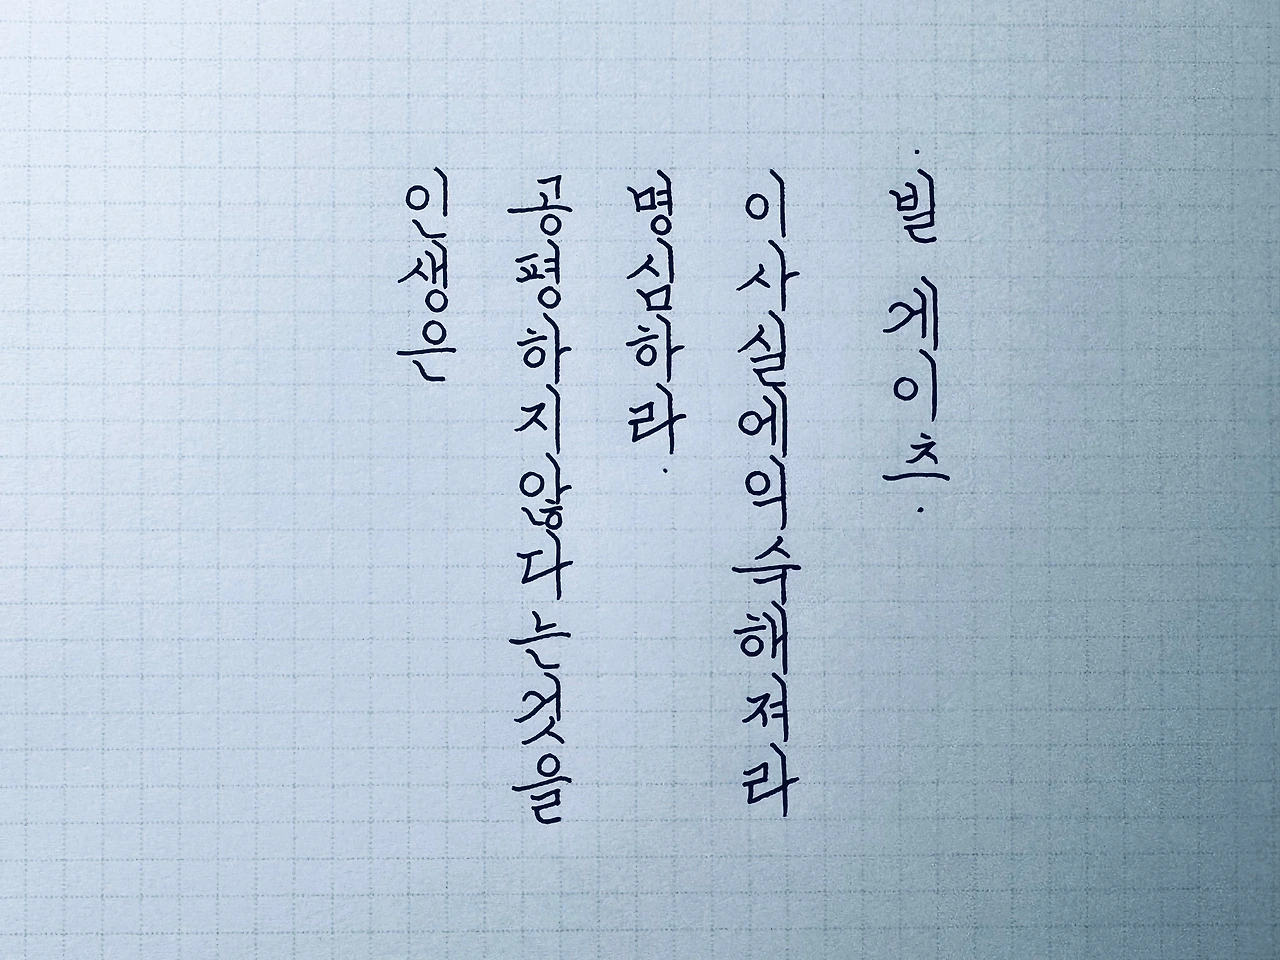 인생은
공평하지않다는것을
명심하라.
이사실에익숙해져라
·빌 게이츠·